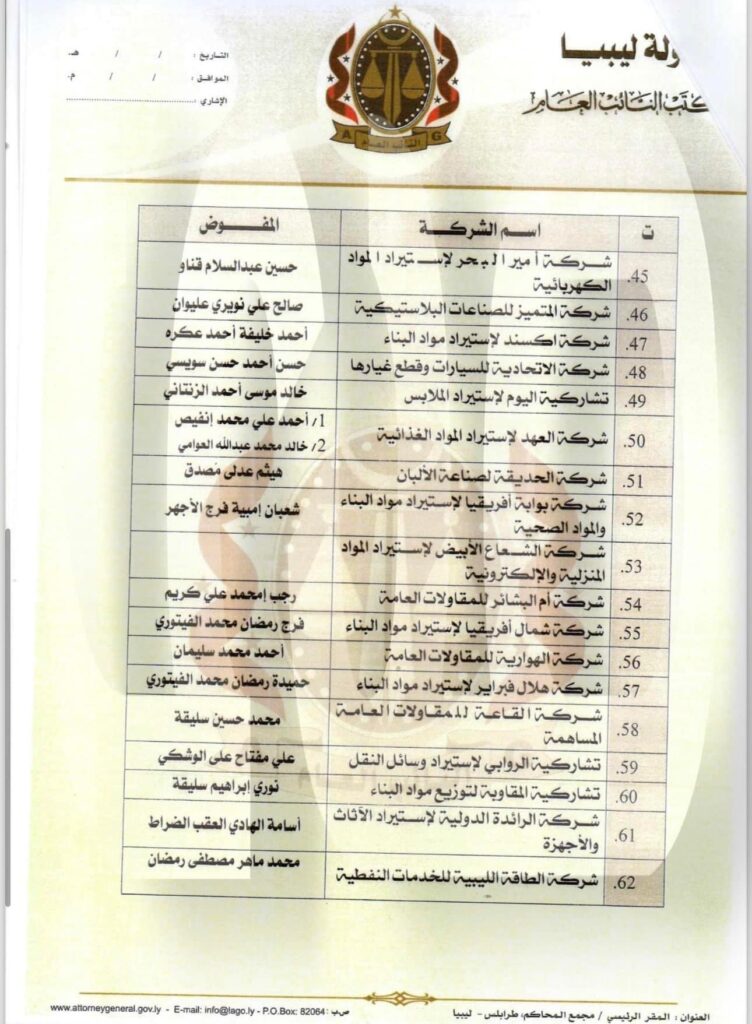 ولة ليبيا
كتب النائب العام
التاريخ : / / هـ
الموافق : / / م
الإشاري :
A G
النائب العام
ت اسم الشركة المفوض
45. شركة أمير البحر لإستيراد المواد الكهربائية حسين عبدالسلام قناو
46. شركة المتميز للصناعات البلاستيكية صالح علي نويري عليوان
47. شركة اكسند لإستيراد مواد البناء أحمد خليفة أحمد عكره
48. شركة الاتحادية للسيارات وقطع غيارها حسن أحمد حسن سويسي
49. تشاركية اليوم لإستيراد الملابس خالد موسى أحمد الزنتاني
50. شركة العهد لإستيراد المواد الغذائية 1/ أحمد علي محمد إنفيص
2/ خالد محمد عبدالله العوامي
51. شركة الحديقة لصناعة الألبان هيثم عدلى مصدق
52. شركة بوابة أفريقيا لإستيراد مواد البناء والمواد الصحية شعبان إمبية فرج الأجهر
53. شركة الشعاع الأبيض لإستيراد المواد المنزلية والإلكترونية
54. شركة أم البشائر للمقاولات العامة رجب إمحمد علي كريم
55. شركة شمال أفريقيا لإستيراد مواد البناء فرج رمضان محمد الفيتوري
56. شركة الهوارية للمقاولات العامة أحمد محمد سليمان
57. شركة هلال فبراير لإستيراد مواد البناء حميدة رمضان محمد الفيتوري
58. شركة القاعة للمقاولات العامة المساهمة محمد حسين سليقة
59. تشاركية الروابي لإستيراد وسائل النقل علي مفتاح على الوشكي
60. تشاركية المقاوبة لتوزيع مواد البناء نوري إبراهيم سليقة
61. شركة الرائدة الدولية لإستيراد الأثاث والأجهزة أسامة الهادي العقب الضراط
62. شركة الطاقة الليبية للخدمات النفطية محمد ماهر مصطفى رمضان
العنوان : المقر الرئيسي / مجمع المحاكم، طرابلس - ليبيا
www.attorneygeneral.gov.ly - E-mail: info@lago.ly - P.O.Box: 82064 : ص.ب